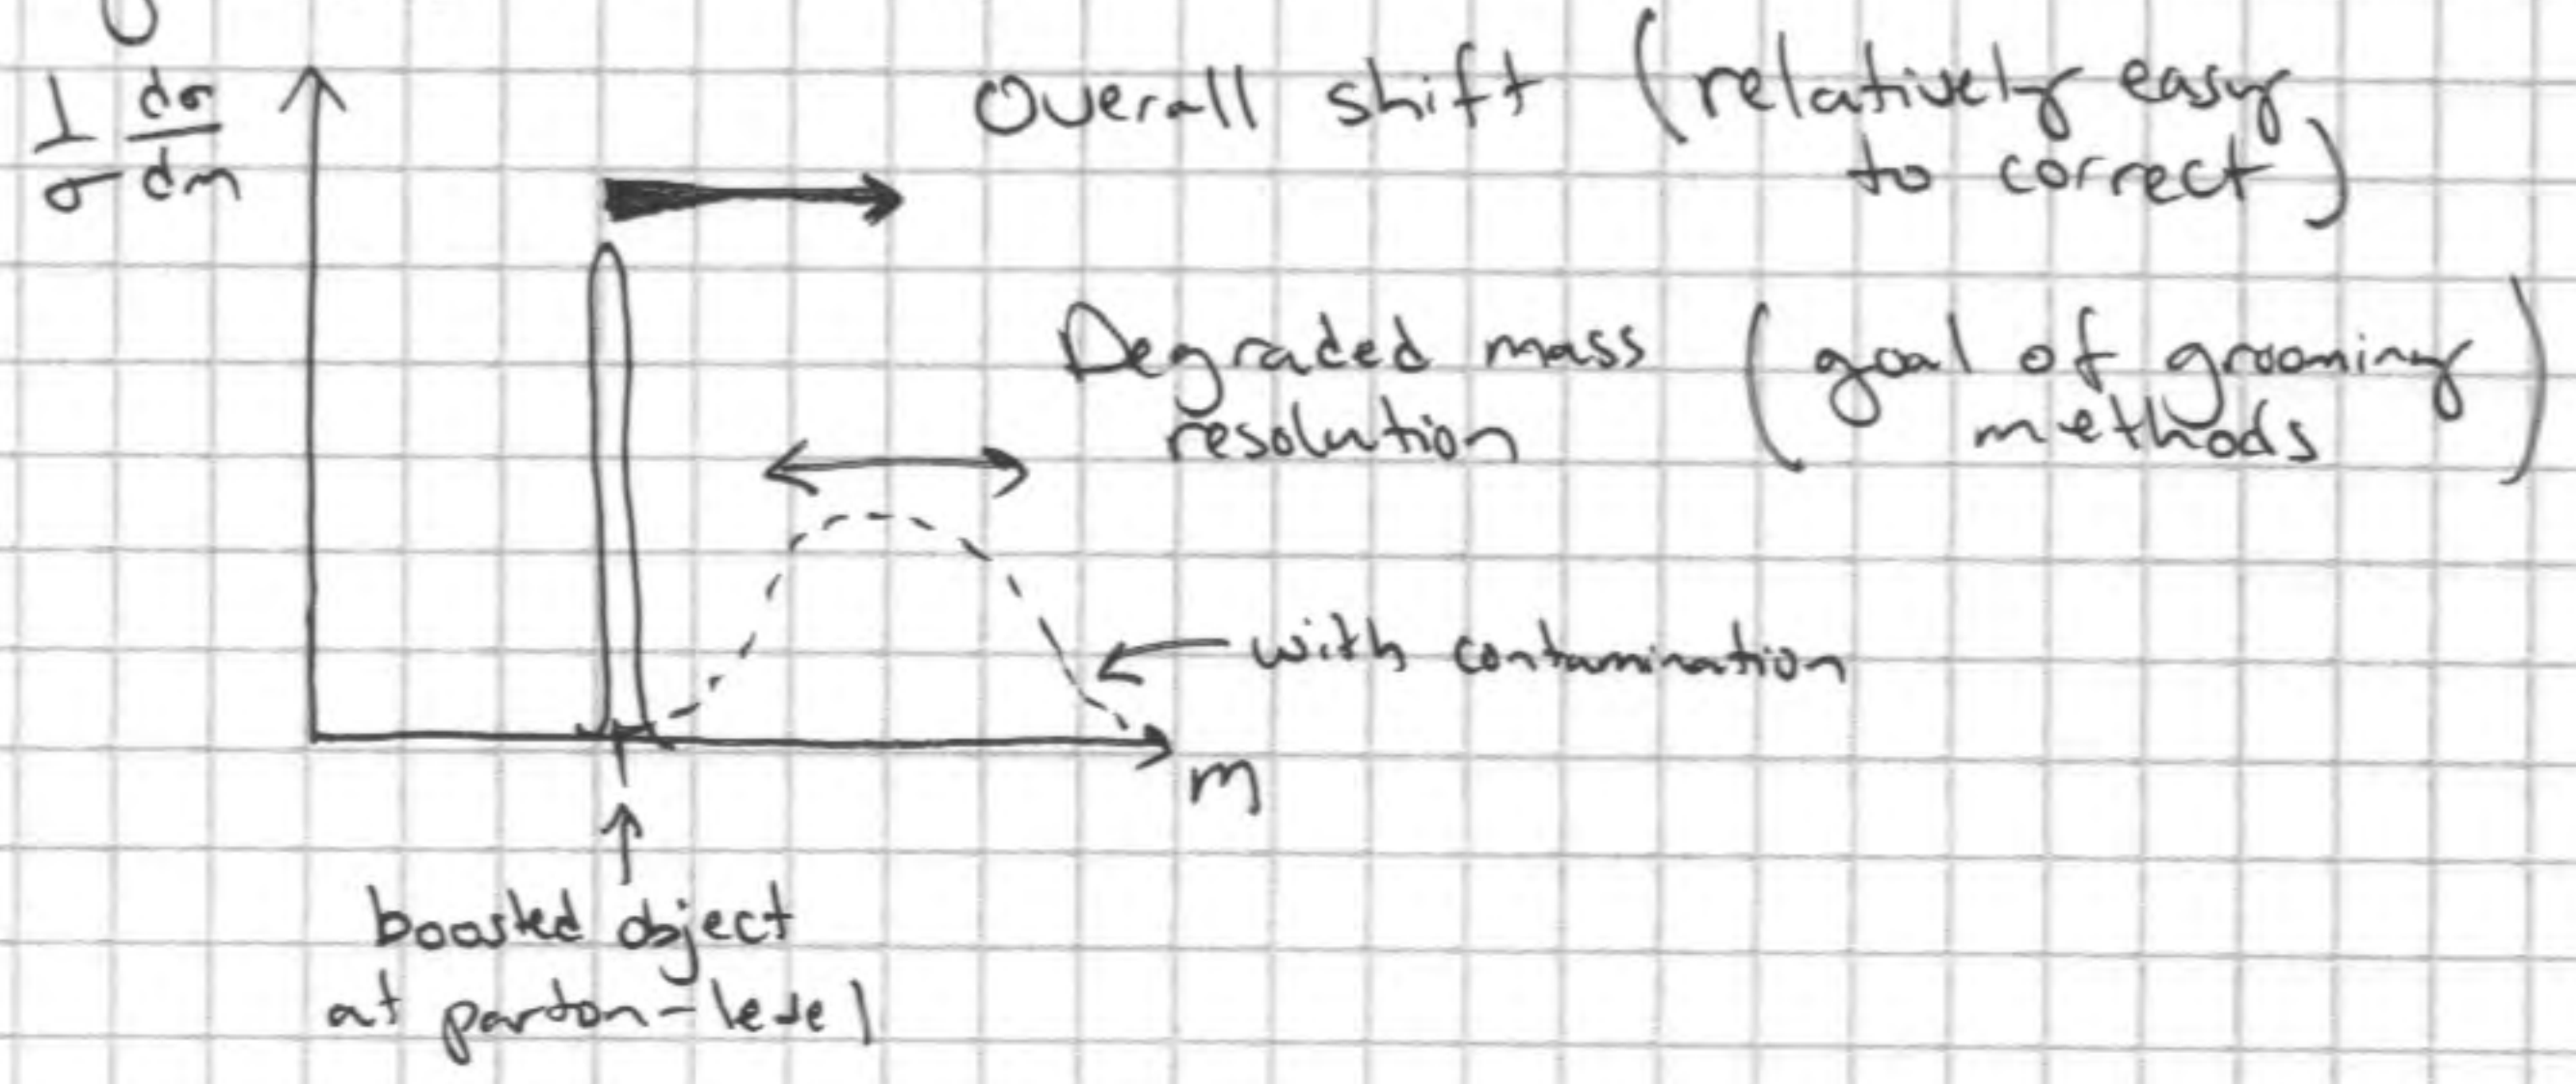 1/σ dσ/dm
Overall shift (relatively easy
to correct)
Degraded mass (goal of grooming
resolution methods)
with contamination
m
boosted object
at parton-level